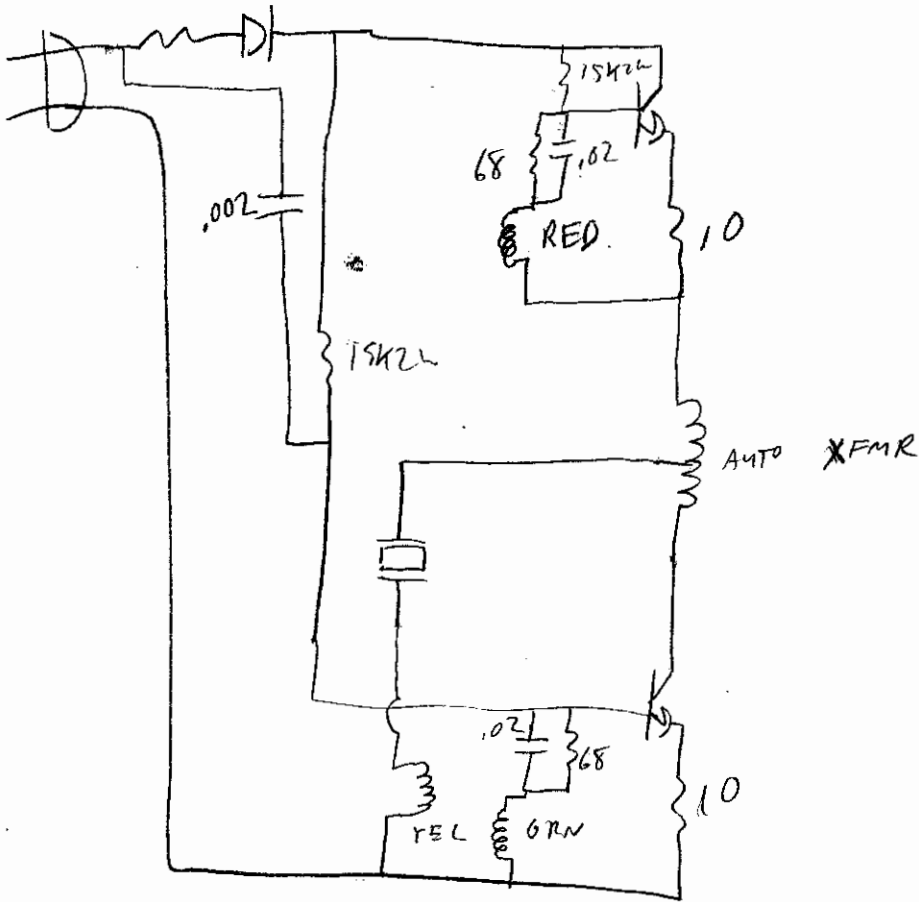 15K2W
68
.02
.002
RED.
10
15K2W
AUTO XFMR
.02
68
10
YEL
GRN